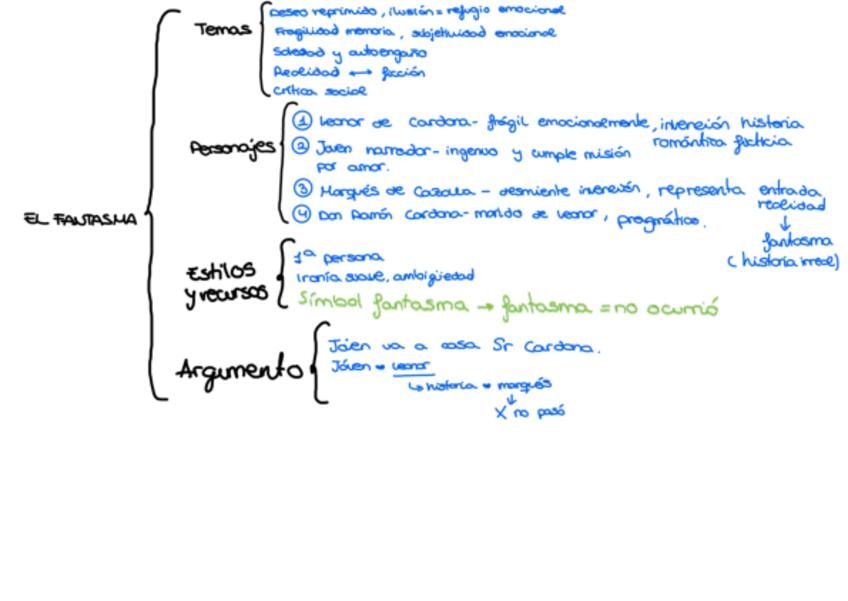 EL FANTASMA
Temas
Deseo reprimido, ilusión = refugio emocional
Fragilidad memoria, subjetividad emocional
Soledad y autoengaño
Realidad ↔ ficción
Crítica social
Personajes
① Leonor de Cardona - frágil emocionalmente, invención historia
romántica ficticia
② Joven narrador - ingenuo y cumple misión
por amor.
③ Marqués de Cazalla - desmiente invención, representa entrada
realidad
↓
fantasma
(historia irreal)
④ Don Ramón Cardona - marido de Leonor, pragmático.
Estilos
y recursos
1ª persona
Ironía suave, ambigüedad
Símbol fantasma → fantasma = no ocurrió
Argumento
Jóven va a casa Sr Cardona.
Jóven Leonor
↳ historia marqués
↓
X no pasó